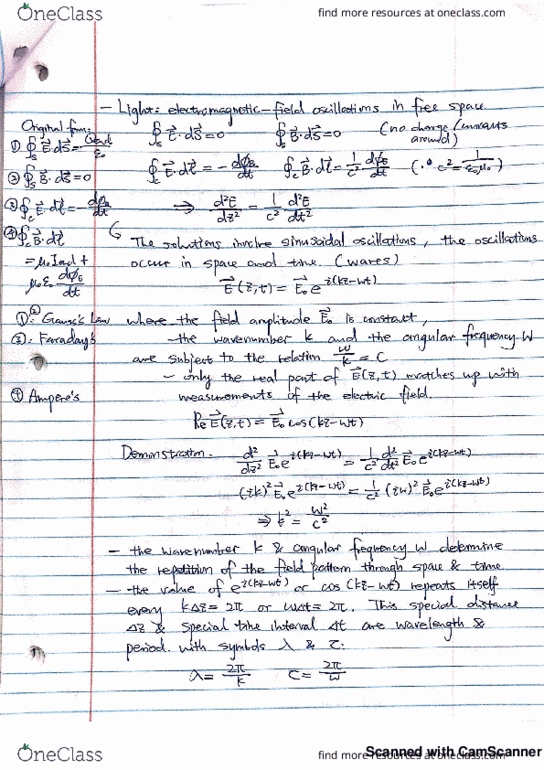 OneClass
find more resources at oneclass.com
- Light: electromagnetic-field oscillations in free space
Original form:
① ∮s E⃗·dS⃗ = Qencl/ε₀
∮s E⃗·dS⃗=0 ∮s B⃗·dS⃗=0 (no charge/currents around)
② ∮s B⃗·dS⃗=0
∮c E⃗·dl⃗ = -dϕB/dt ∮c B⃗·dl⃗ = 1/c² dϕE/dt (∵ c² = 1/ε₀μ₀)
③ ∮c E⃗·dl⃗ = -dϕB/dt
⇒ d²E/dz² = 1/c² d²E/dt²
④ ∮c B⃗·dl⃗
= μ₀Iencl +
μ₀ε₀ dϕE/dt
The solutions involve sinusoidal oscillations, the oscillations
occur in space and time. (waves)
E⃗(z,t) = E⃗₀ e^i(kz-wt)
①②: Gauss's Law
where the field amplitude E⃗₀ is constant,
③: Faraday's
the wavenumber k and the angular frequency w
are subject to the relation w/k = c
- only the real part of E⃗(z,t) matches up with
④ Ampere's
measurements of the electric field.
Re E⃗(z,t) = E⃗₀ cos(kz-wt)
Demonstration.
d²/dz² E⃗₀e^i(kz-wt) = 1/c² d²/dt² E⃗₀e^i(kz-wt)
(ik)² E⃗₀e^i(kz-wt) = 1/c² (iw)² E⃗₀e^i(kz-wt)
⇒ k² = w²/c²
- the wavenumber k & angular frequency w determine
the repetition of the field pattern through space & time
- the value of e^i(kz-wt) or cos(kz-wt) repeats itself
every kΔz = 2π or wΔt = 2π. This special distance
Δz & special time interval Δt are wavelength &
period. with symbols λ & τ.
λ = 2π/k τ = 2π/w
OneClass
find more resources at oneclass.com
Scanned with CamScanner